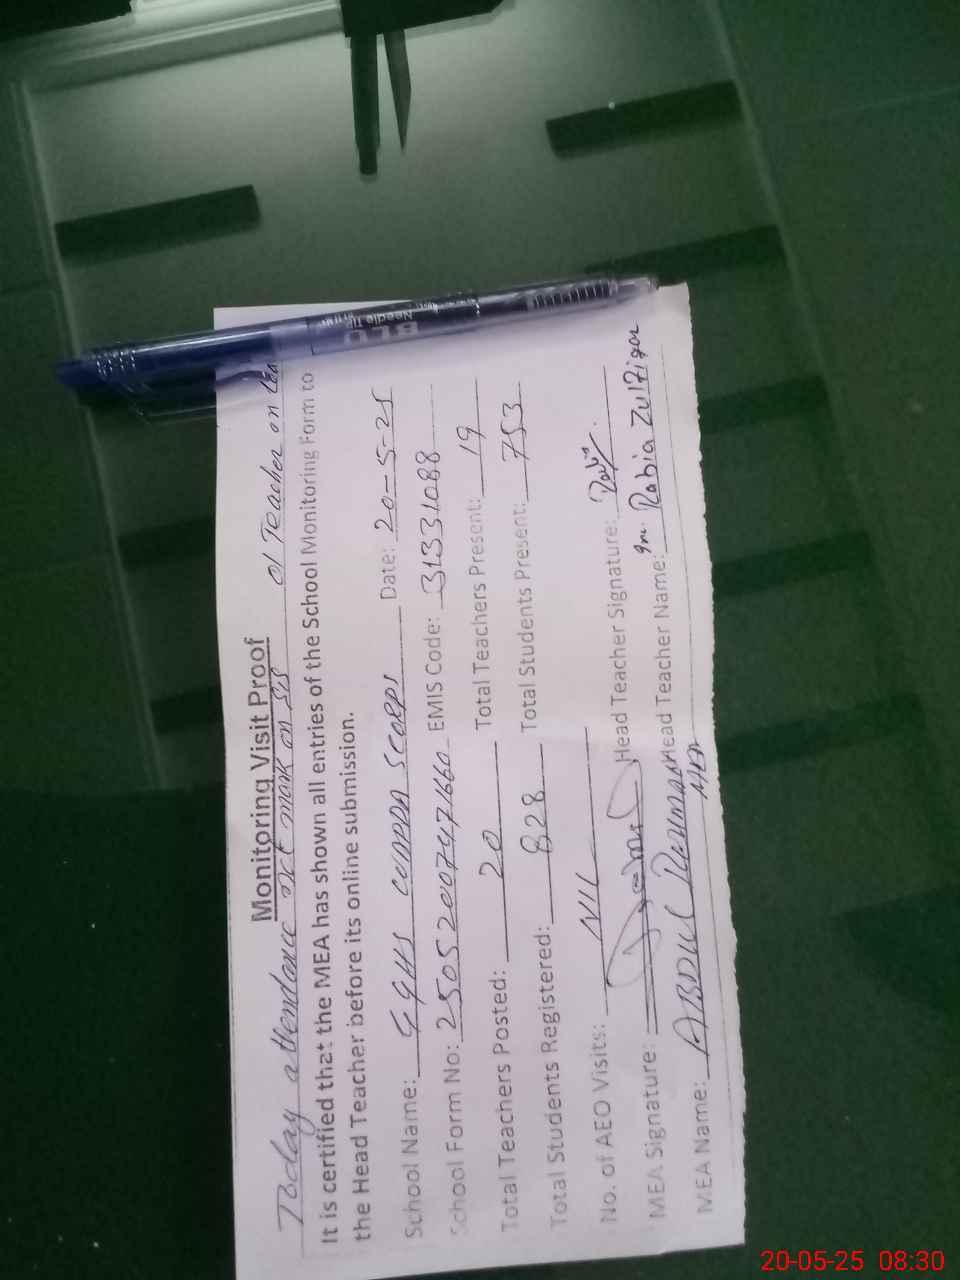 Monitoring Visit Proof
Today attendance not mark on SIS 01 Teacher on
It is certified that the MEA has shown all entries of the School Monitoring Form to
the Head Teacher before its online submission.
School Name: GGHS COMDA SCORPS Date: 20-5-25
School Form No: 25052007471660 EMIS Code: 31331088
Total Teachers Posted: 20 Total Teachers Present: 19
Total Students Registered: 828 Total Students Present: 753
No. of AEO Visits: NIL
MEA Signature: Head Teacher Signature:
MEA Name: ABDUL REHMAN MEA Head Teacher Name: Rabia Zulfiqar
BLU
Needle Tip
20-05-25 08:30